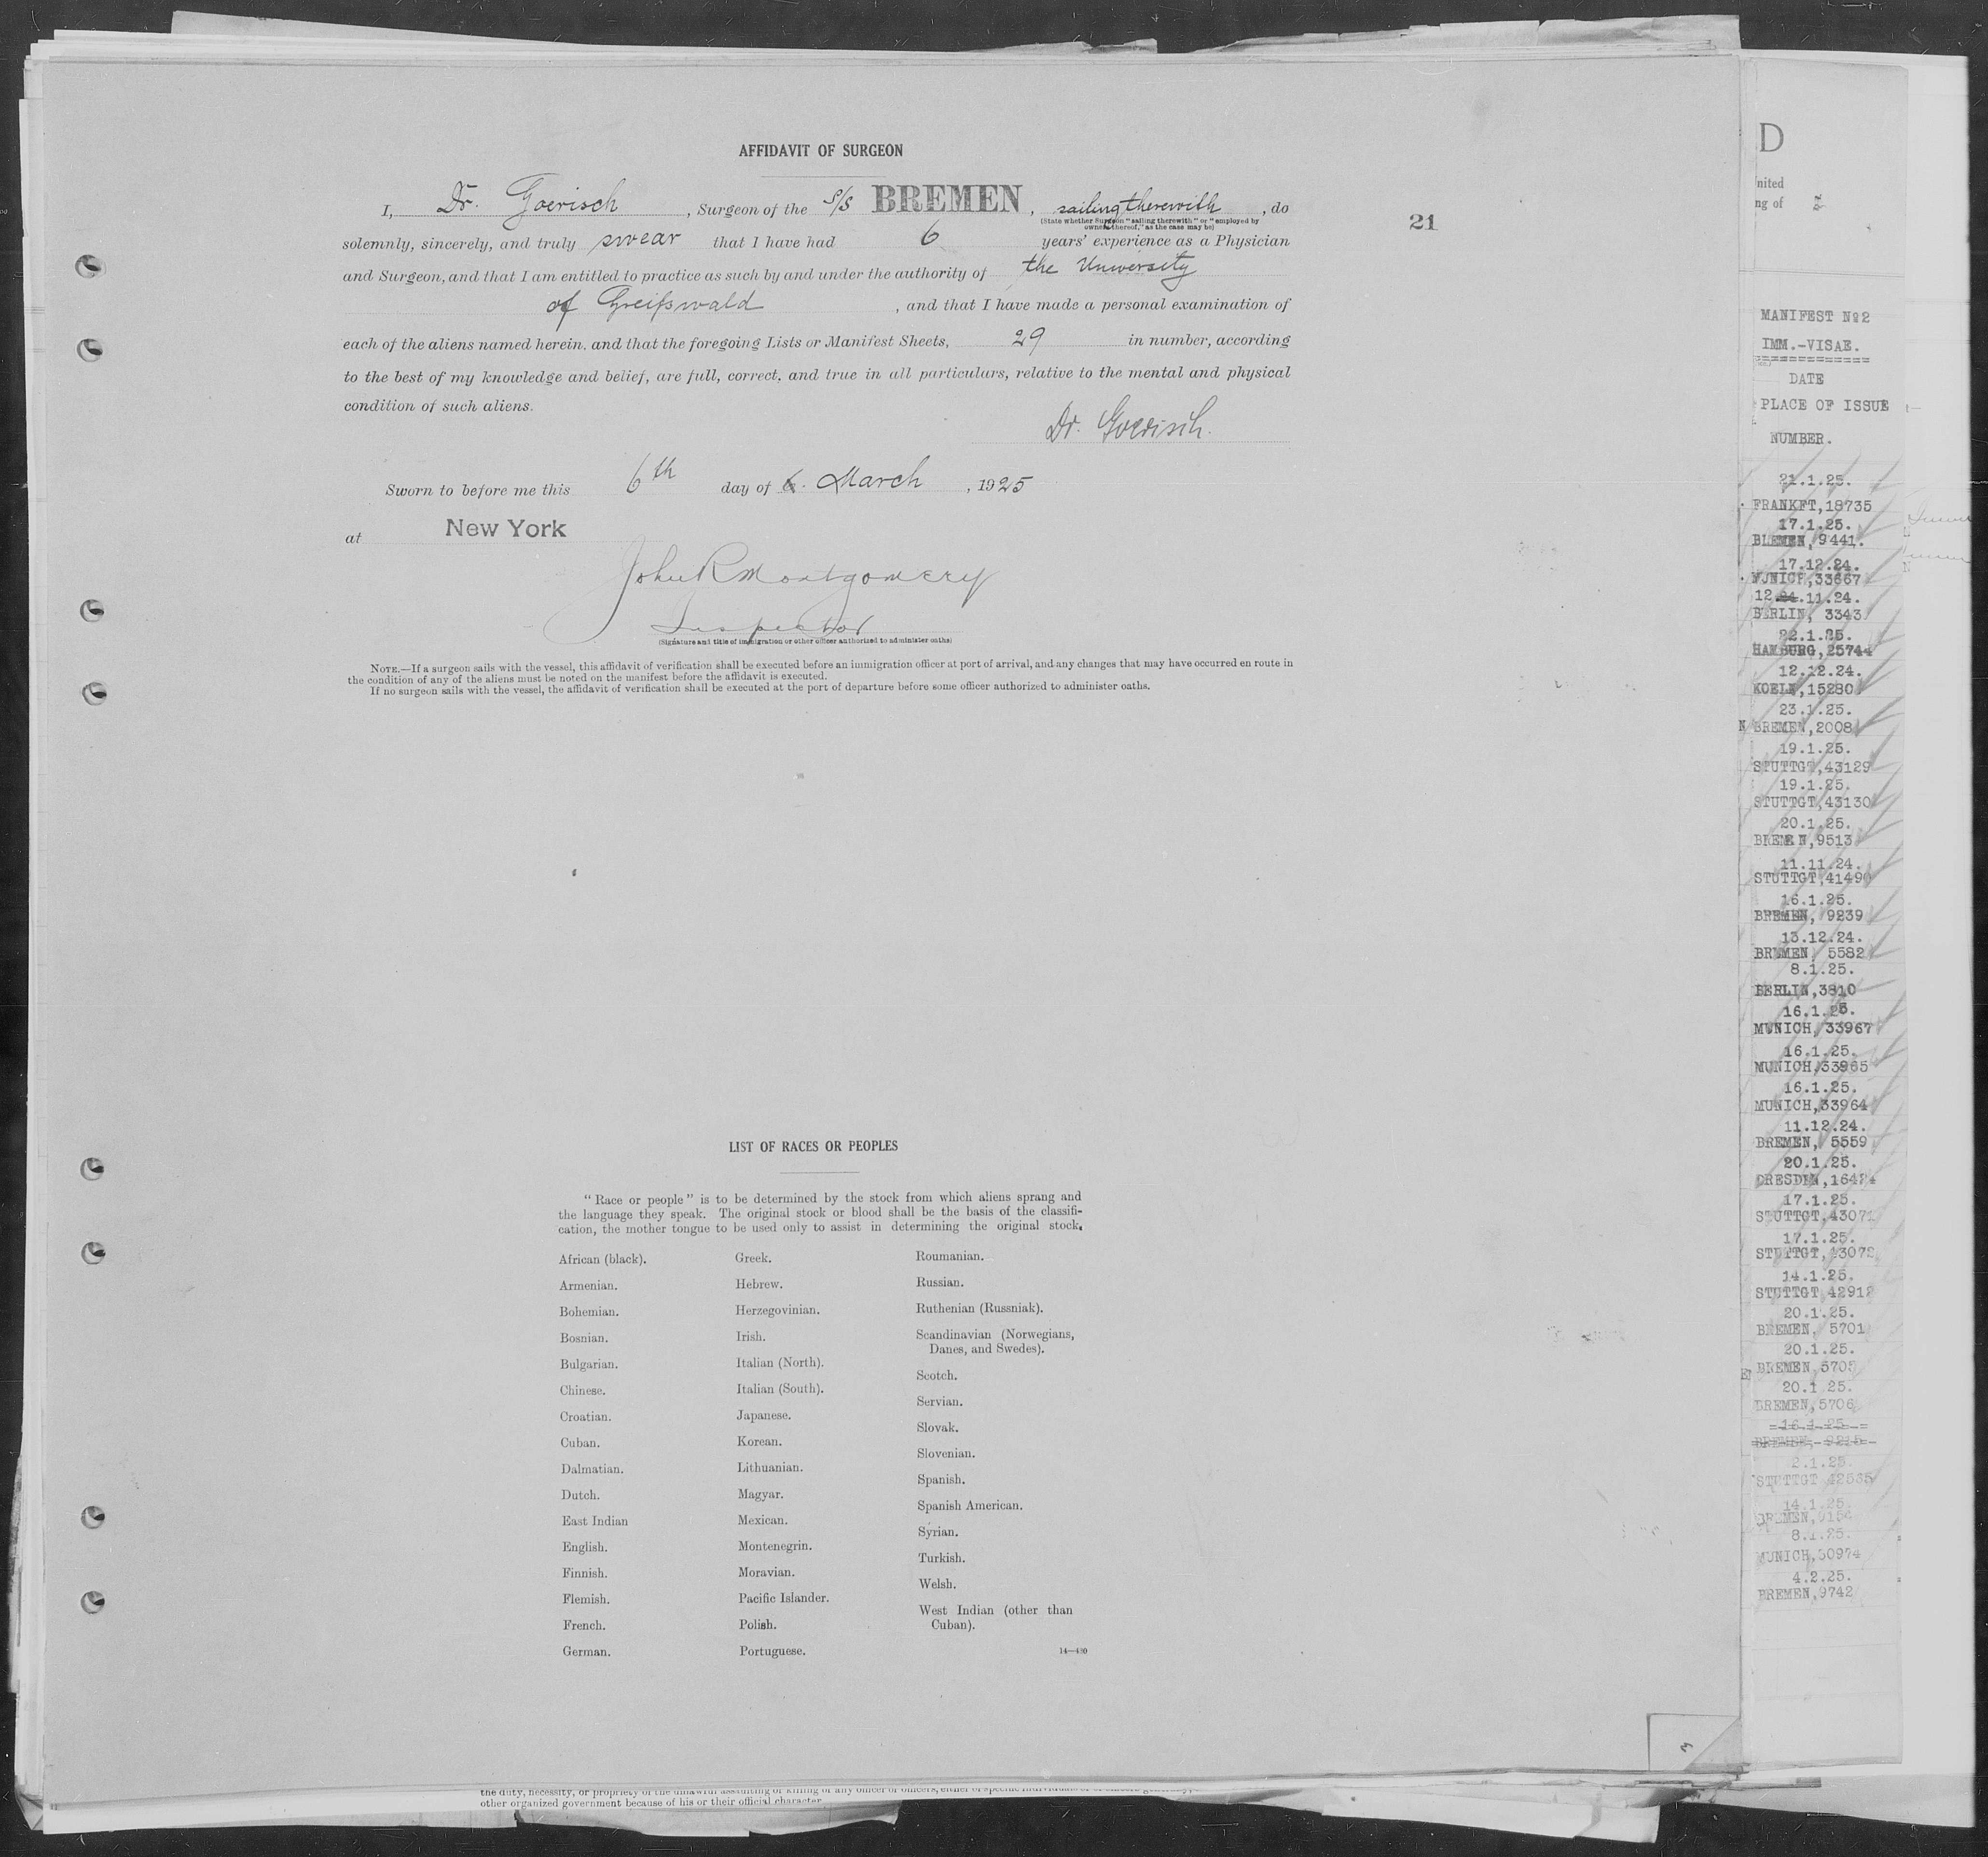 AFFIDAVIT OF SURGEON
I, Dr. Goerisch, Surgeon of the S/S BREMEN, sailing therewith, do
(State whether Surgeon "sailing therewith" or "employed by
owners thereof," as the case may be)
21
solemnly, sincerely, and truly swear that I have had 6 years' experience as a Physician
and Surgeon, and that I am entitled to practice as such by and under the authority of the University
of Greifswald, and that I have made a personal examination of
each of the aliens named herein, and that the foregoing Lists or Manifest Sheets, 29 in number, according
to the best of my knowledge and belief, are full, correct, and true in all particulars, relative to the mental and physical
condition of such aliens.
Dr. Goerisch.
Sworn to before me this 6th day of 6. March, 1925
at New York
John R Montgomery
Inspector
(Signature and title of immigration or other officer authorized to administer oaths)
NOTE.—If a surgeon sails with the vessel, this affidavit of verification shall be executed before an immigration officer at port of arrival, and any changes that may have occurred en route in
the condition of any of the aliens must be noted on the manifest before the affidavit is executed.
If no surgeon sails with the vessel, the affidavit of verification shall be executed at the port of departure before some officer authorized to administer oaths.
LIST OF RACES OR PEOPLES
"Race or people" is to be determined by the stock from which aliens sprang and
the language they speak. The original stock or blood shall be the basis of the classifi-
cation, the mother tongue to be used only to assist in determining the original stock.
African (black).
Armenian.
Bohemian.
Bosnian.
Bulgarian.
Chinese.
Croatian.
Cuban.
Dalmatian.
Dutch.
East Indian
English.
Finnish.
Flemish.
French.
German.
Greek.
Hebrew.
Herzegovinian.
Irish.
Italian (North).
Italian (South).
Japanese.
Korean.
Lithuanian.
Magyar.
Mexican.
Montenegrin.
Moravian.
Pacific Islander.
Polish.
Portuguese.
Roumanian.
Russian.
Ruthenian (Russniak).
Scandinavian (Norwegians,
Danes, and Swedes).
Scotch.
Servian.
Slovak.
Slovenian.
Spanish.
Spanish American.
Syrian.
Turkish.
Welsh.
West Indian (other than
Cuban).
14—430
the duty, necessity, or propriety of the unlawful assaulting or killing of any officer or officers, either of specific individuals or of officers generally,
other organized government because of his or their official character
D
nited
ng of
MANIFEST No 2
IMM.-VISAE.
DATE
PLACE OF ISSUE
NUMBER.
21.1.25.
FRANKFT,18735
17.1.25.
BREMEN, 9441.
17.12.24.
MUNICH,33667
12.11.24.
BERLIN, 3343
22.1.25.
HAMBURG,25744
12.12.24.
KOELN,15280
23.1.25.
N BREMEN,2008
19.1.25.
STUTTGT,43129
19.1.25.
STUTTGT,43130
20.1.25.
BREMEN,9513
11.11.24.
STUTTGT,41490
16.1.25.
BREMEN, 9239
13.12.24.
BREMEN, 5582
8.1.25.
BERLIN,3810
16.1.25.
MUNICH,33967
16.1.25.
MUNICH,33965
16.1.25.
MUNICH,33964
11.12.24.
BREMEN, 5559
20.1.25.
DRESDEN,16424
17.1.25.
STUTTGT,43071
17.1.25.
STUTTGT,43072
14.1.25.
STUTTGT 42912
20.1.25.
BREMEN, 5701
20.1.25.
BREMEN,5705
20.1.25.
BREMEN,5706
16.1.25.
BREMEN, 9215
2.1.25.
STUTTGT 42535
14.1.25.
BREMEN,9154
8.1.25.
MUNICH,30974
4.2.25.
BREMEN,9742